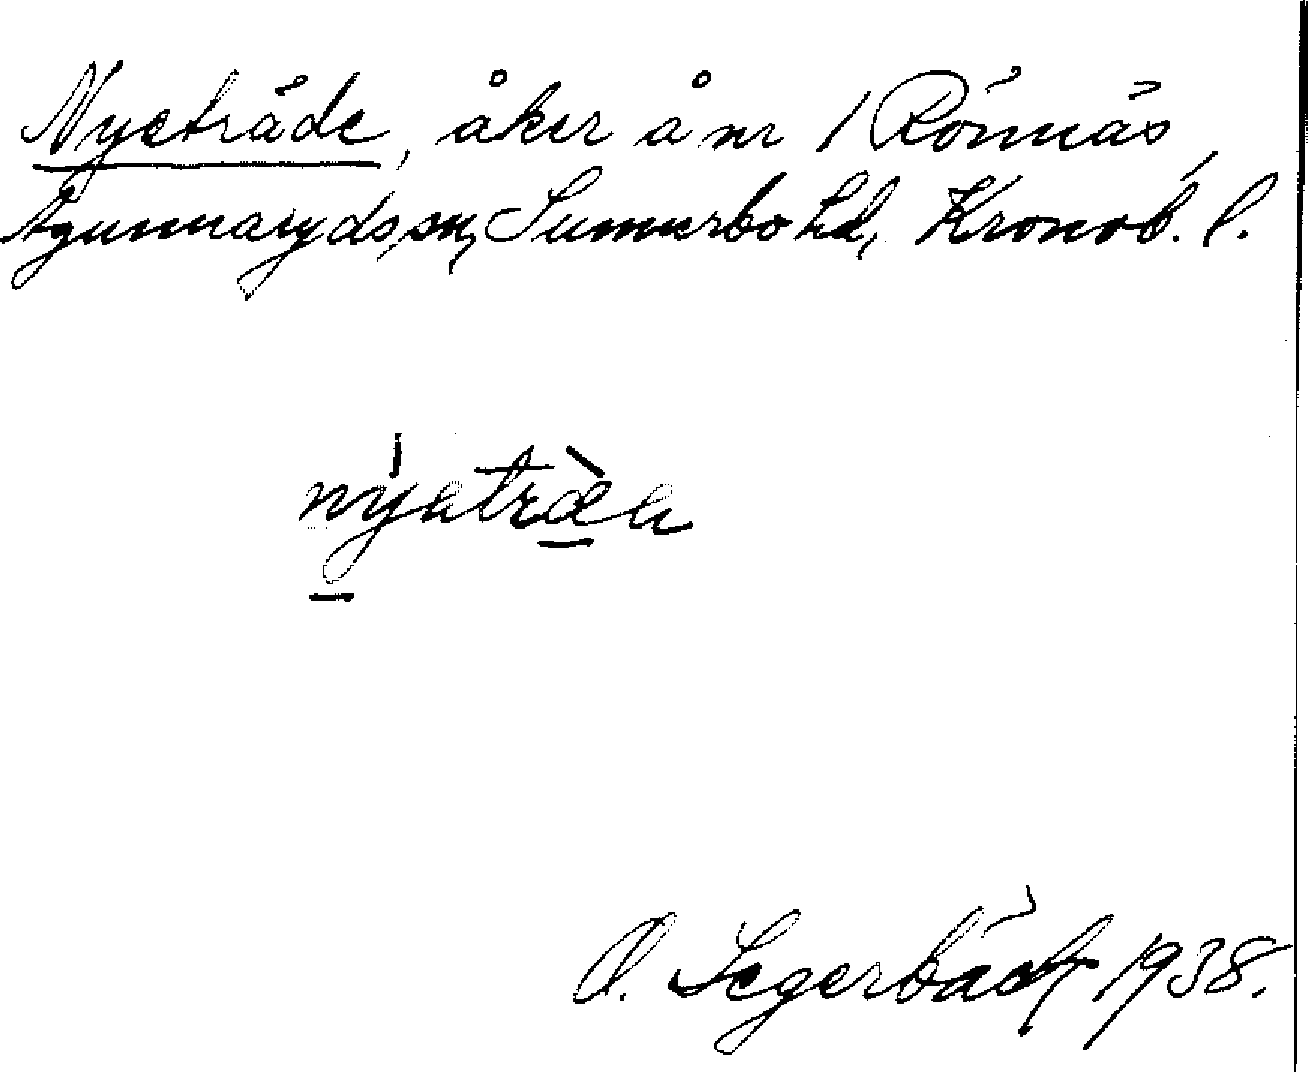 Nyeträde, åker å nr 1 Rönnäs,
Agunnaryds sn, Sunnerbo hd, Kronob. l.
O. Segerbäck 1938.